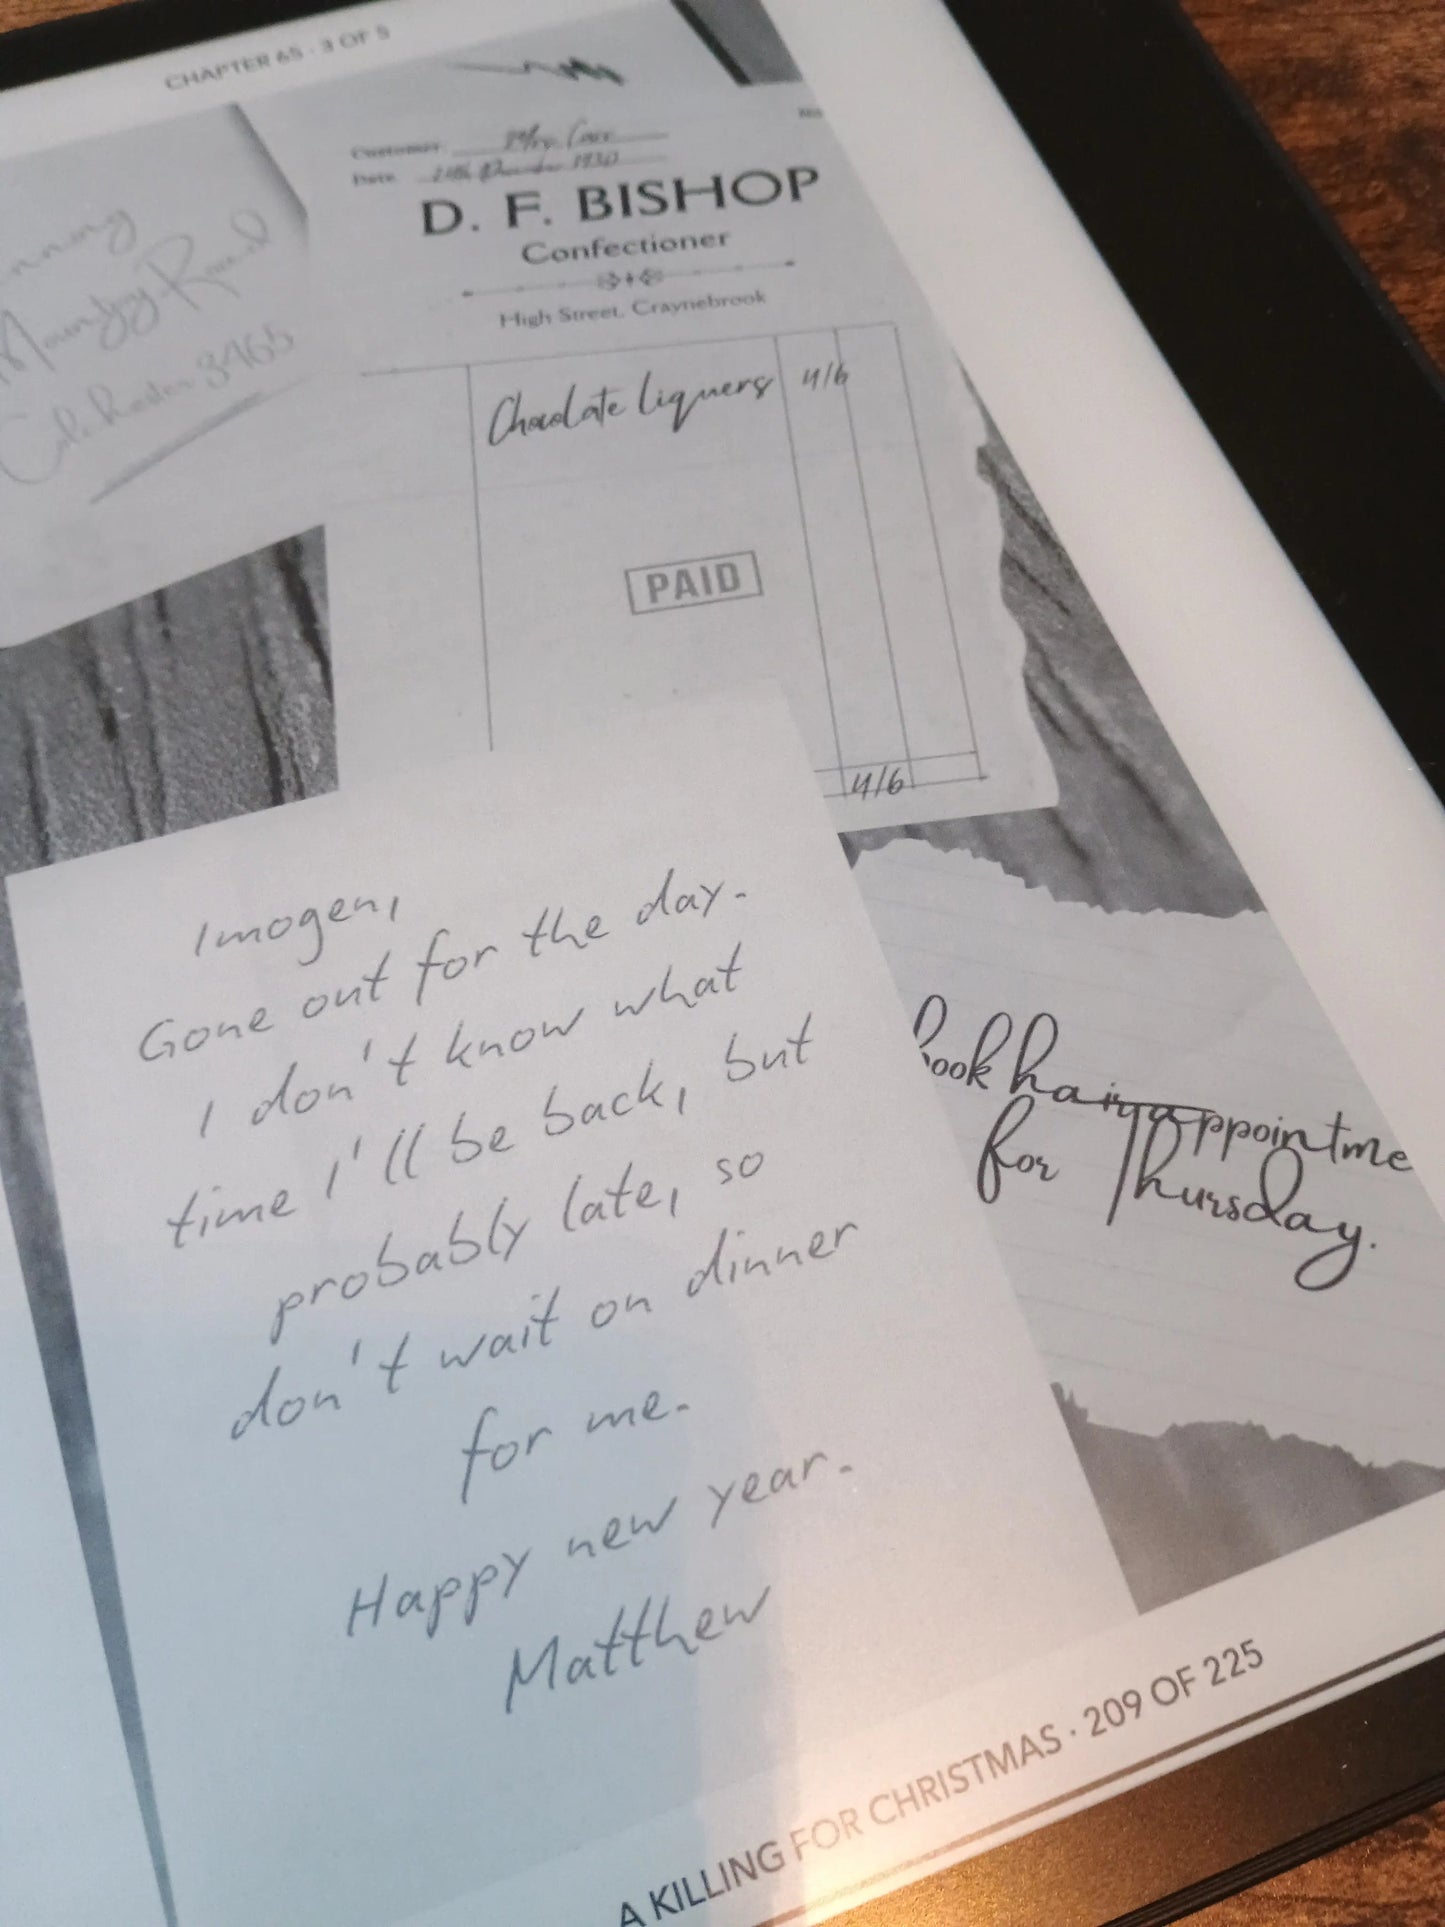 CHAPTER 65 · 3 OF 5
Customer
Date 1930
D. F. BISHOP
Confectioner
High Street, Craynebrook
Chocolate liquers 4/6
PAID
4/6
Road
3465
Imogen,
Gone out for the day.
I don't know what
time I'll be back, but
probably late, so
don't wait on dinner
for me.
Happy new year.
Matthew
book hair appointme
for Thursday.
A KILLING FOR CHRISTMAS · 209 OF 225